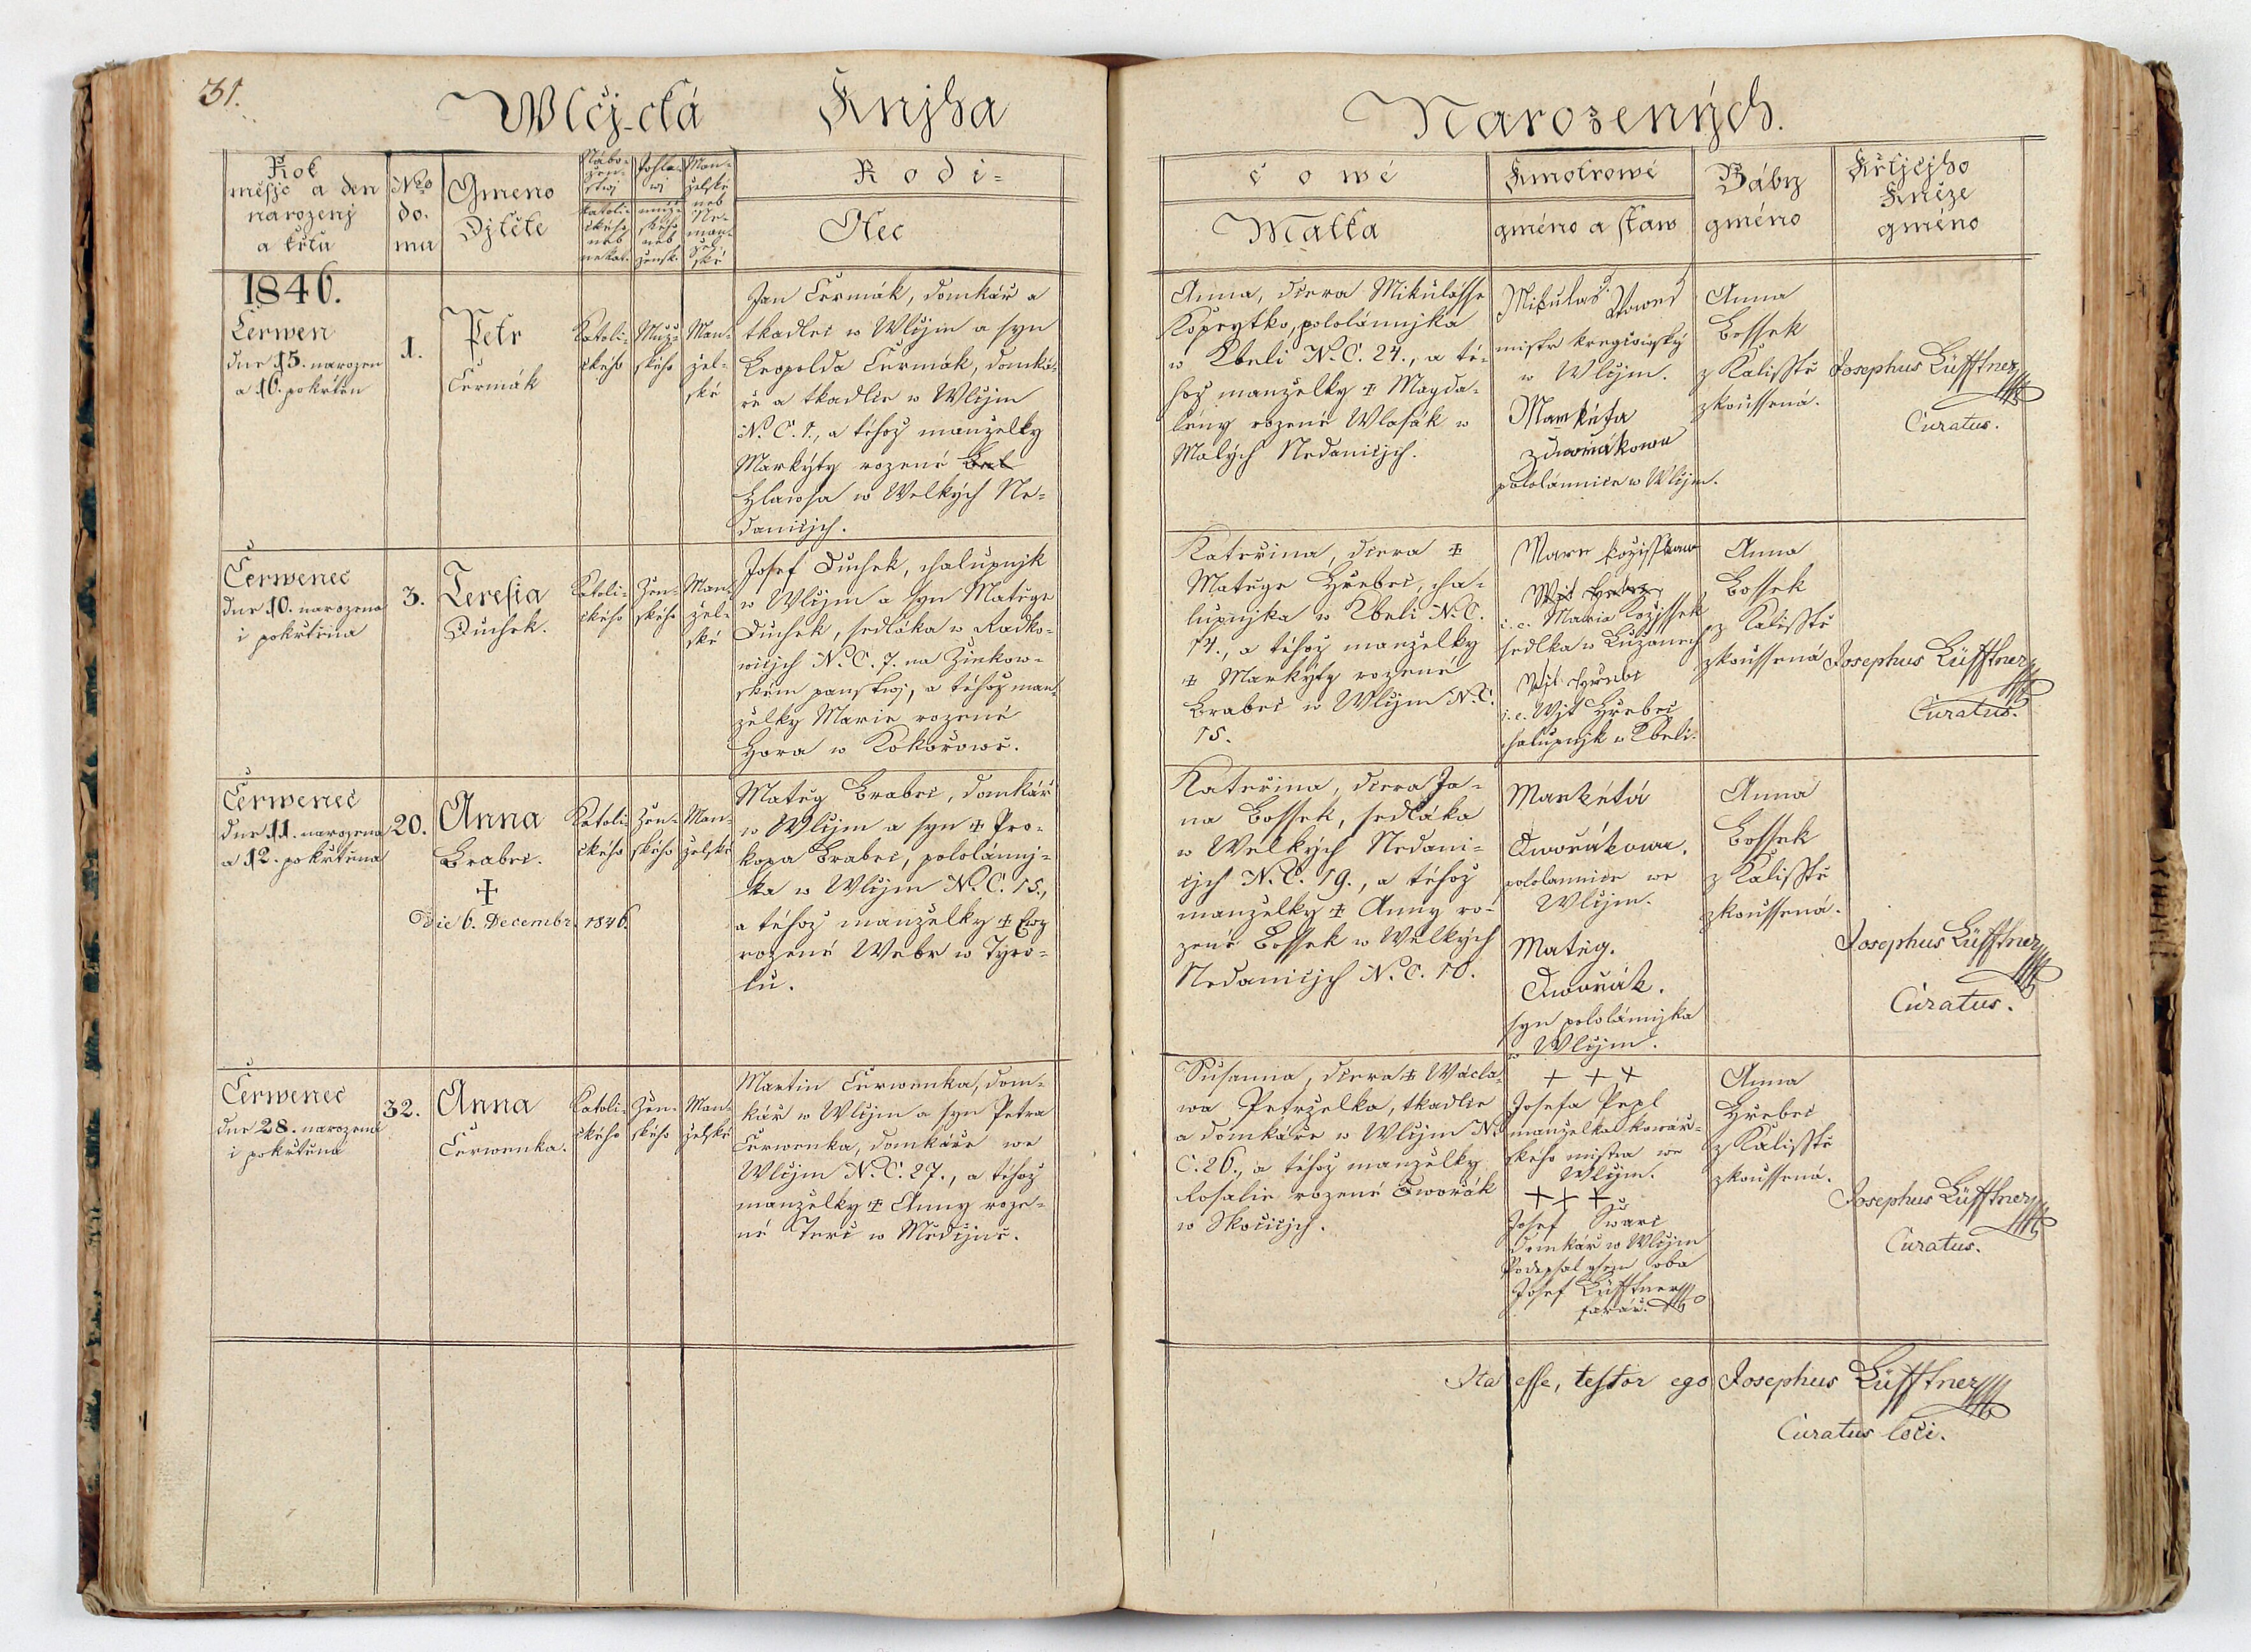 31.
Wlčj-cká Knjha
Narozených.
Rok
měsjc a den
narozenj
a křtu
Nro
do-
mu
Gmeno
Djtěte
Nábo-
žen-
stwj
katoli-
ckého
neb
nekat.
Pohla-
wj
muž-
ského
neb
žensk.
Man-
želské
neb
Ne-
man-
žel-
ské
Rodi-
Otec
čowé
Matka
Kmotrowé
gméno a staw
Báby
gméno
Křtjcjho
Kněze
gméno
1846.
Čerwen
dne 15. narozen
a 16. pokřtěn
1.
Petr
Čermák
Katoli-
ckého
Muž-
ského
Man-
žel-
ské
Jan Čermák, domkář a
tkadlec w Wlčjm a syn
Leopolda Čermák, domká-
ře a tkadlce w Wlčjm
N. C. 1., a téhož manželky
Markýty rozené
Hlawsa w Welkých Ne-
danicjch.
Anna, dcera Mikulásse
Kopeytko, pololánnjka
w Kbeli N. C. 24., a té-
hož manželky ‡ Magda-
lény rozené Wlasák w
Malých Nedanicjch.
Mikulas
mistr kregčowský
w Wlčjm.
Markéta
Dwořákowa
pololánnice w Wlčjm.
Anna
Bossek
z Kalisstě
zkoussená.
Josephus Lüfftner
Curatus.
Čerwenec
dne 10. narozena
i pokřtěna
3.
Teresia
Duchek.
Katoli-
ckého
Žen-
ského
Man-
žel-
ské
Josef Duchek, chalupnjk
w Wlčjm a syn Matěge
Duchek, sedláka w Radko-
wicjch N. C. 7. na Žinkow-
ském panstwj, a téhož man-
želky Marie rozené
Hora w Kokořowě.
Kateřina, dcera ‡
Matěge Hřebec, cha-
lupnjka w Kbeli N. C.
14., a téhož manželky
‡ Markyty rozené
Brabec w Wlčjm N. C.
15.
i. e. Maria Kozjssek
sedlka w Lužanech
Wjt Hřebec
i. e. Wjt Hřebec
chalupnjk w Kbeli.
Anna
Bossek
z Kalisstě
zkoussená
Josephus Lüfftner
Curatus.
Čerwenec
dne 11. narozena
a 12. pokřtěna
20.
Anna
Brabec.
‡
Die 6. Decembr. 1846.
Katoli-
ckého
Žen-
ského
Man-
želské
Matěg Brabec, domkář
w Wlčjm a syn ‡ Pro-
kopa Brabec, pololánnj-
ka w Wlčjm N. C. 15.,
a téhož manželky ‡ Ewy
rozené Webr w Tyro-
lu.
Kateřina, dcera Ja-
na Bossek, sedláka
w Welkých Nedani-
cjch N. C. 19., a téhož
manželky ‡ Anny ro-
zené Bossek w Welkých
Nedanicjch N. C. 10.
Markétá
Dwořákowa.
pololannice we
Wlčjm.
Matěg.
Dwořák.
syn pololánnjka
w Wlčjm.
Anna
Bossek
z Kalisstě
zkoussená.
Josephus Lüfftner
Curatus.
Čerwenec
dne 28. narozena
i pokřtěna
32.
Anna
Čerwenka.
Katoli-
ckého
Žen-
ského
Man-
želské
Martin Čerwenka, dom-
kář w Wlčjm a syn Petra
Čerwenka, domkáře we
Wlčjm N. C. 27., a téhož
manželky ‡ Anny roze-
né Terč w Medcjně.
Susanna, dcera ‡ Wácla-
wa Petrželka, tkadlce
a domkáře w Wlčjm N.
C. 26., a téhož manželky
Rosalie rozené Dwořák
w Skočicjch.
+ + +
Josefa Pepl
manželka kowář-
ského mistra we
Wlčjm.
+ + +
Josef Swarc
domkář w Wlčjm
Podepsal gsem oba
Josef Lüfftner
farář.
Anna
Hřebec
z Kalisstě
zkoussená.
Josephus Lüfftner
Curatus.
Ita esse, testor ego Josephus Lüfftner
Curatus loci.